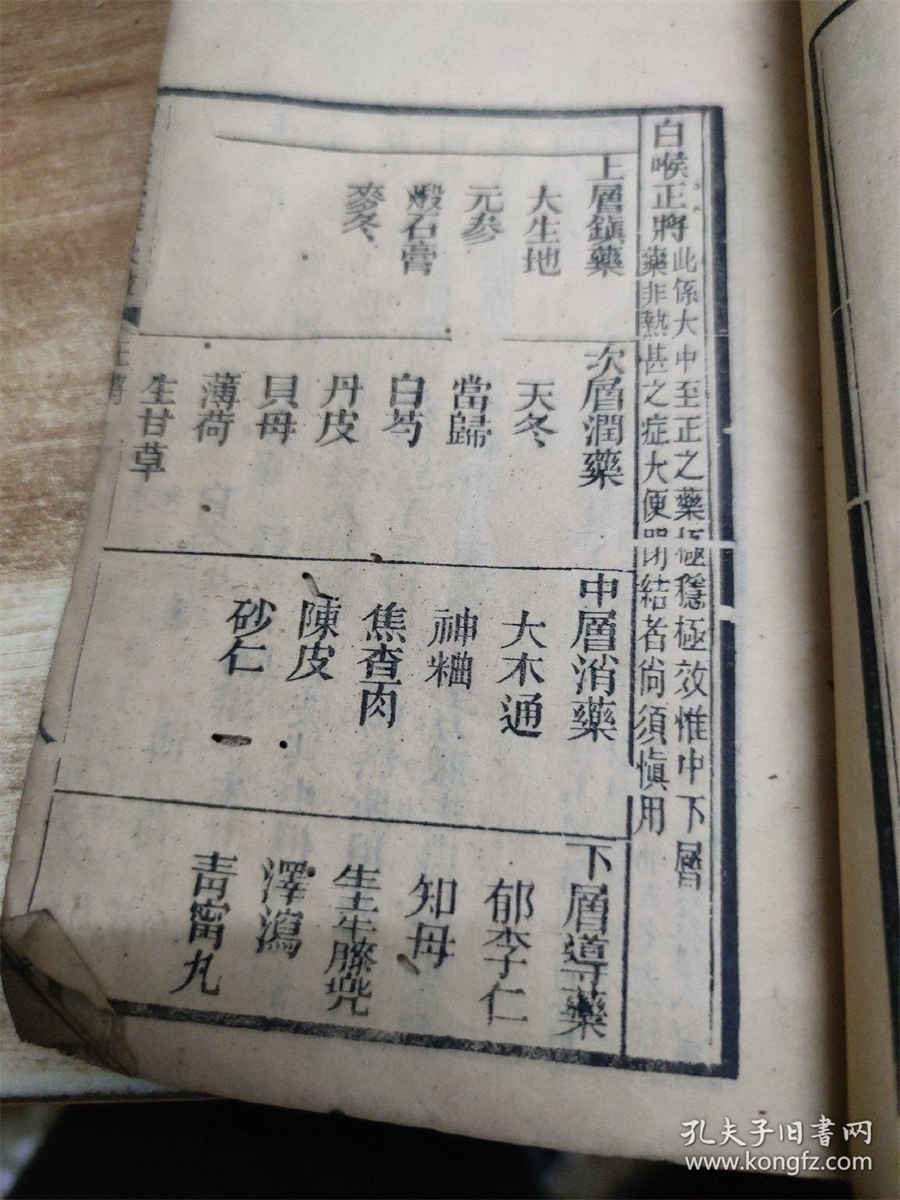 白喉正將
此係大中至正之藥極穩極效惟中下層
藥非熱甚之症大便閉結者尚須慎用
上層鎮藥
大生地
元參
煅石膏
麥冬
次層潤藥
天冬
當歸
白芍
丹皮
貝母
薄荷
生甘草
中層消藥
大木通
神粬
焦查肉
陳皮
砂仁
下層導藥
郁李仁
知母
生土牛膝兠
澤瀉
青甯丸
孔夫子旧书网
www.kongfz.com